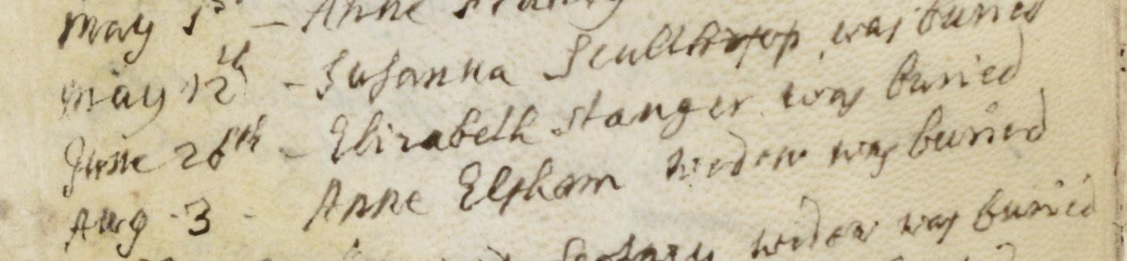 May 1st - Anne
May 12th - Susanna Scullthrop was buried
June 26th - Elizabeth Stanger was buried
Aug 3 - Anne Elsham widow was buried
widow was buried